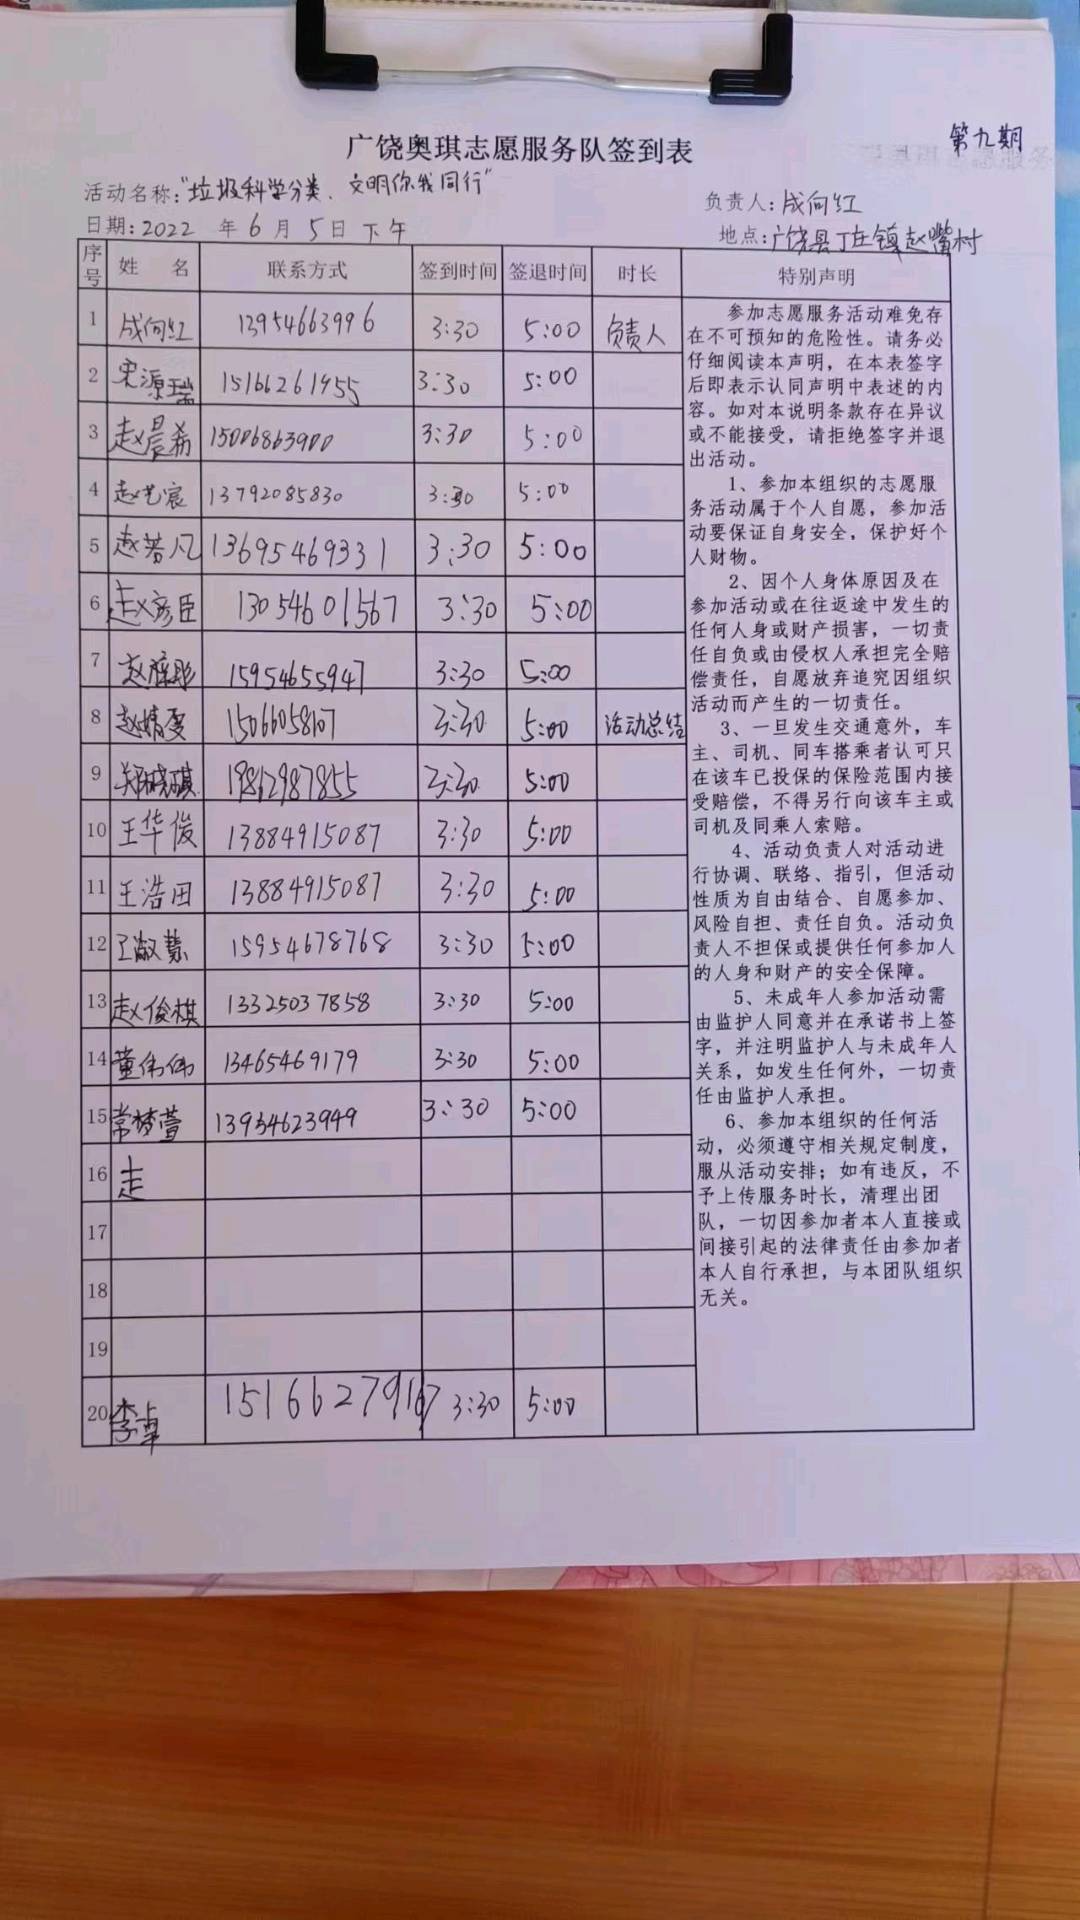 第九期
广饶奥琪志愿服务队签到表
活动名称:"垃圾科学分类、文明你我同行" 负责人:成向红
日期:2022 年 6 月 5 日 下午 地点:广饶县丁庄镇赵嘴村
序号 姓 名 联系方式 签到时间 签退时间 时长 特别声明
1 成向红 13954663996 3:30 5:00 负责人
2 宋源瑞 15166261455 3:30 5:00
3 赵晨希 15006863900 3:30 5:00
4 赵艺宸 13792085830 3:30 5:00
5 赵若凡 13695469331 3:30 5:00
6 赵彦臣 13054601567 3:30 5:00
7 15954655947 3:30 5:00
8 赵婧雯 15066058107 3:30 5:00 活动总结
9 郑晓琪 19862987855 3:30 5:00
10 王华俊 13884915087 3:30 5:00
11 王浩田 13884915087 3:30 5:00
12 王淑慧 15954678768 3:30 5:00
13 赵俊棋 13325037858 3:30 5:00
14 董伟伟 13465469179 3:30 5:00
15 常梦萱 13954623949 3:30 5:00
16 走
17
18
19
20 李卓 15166279167 3:30 5:00
参加志愿服务活动难免存
在不可预知的危险性。请务必
仔细阅读本声明，在本表签字
后即表示认同声明中表述的内
容。如对本说明条款存在异议
或不能接受，请拒绝签字并退
出活动。
1、参加本组织的志愿服
务活动属于个人自愿，参加活
动要保证自身安全，保护好个
人财物。
2、因个人身体原因及在
参加活动或在往返途中发生的
任何人身或财产损害，一切责
任自负或由侵权人承担完全赔
偿责任，自愿放弃追究因组织
活动而产生的一切责任。
3、一旦发生交通意外，车
主、司机、同车搭乘者认可只
在该车已投保的保险范围内接
受赔偿，不得另行向该车主或
司机及同乘人索赔。
4、活动负责人对活动进
行协调、联络、指引，但活动
性质为自由结合、自愿参加、
风险自担、责任自负。活动负
责人不担保或提供任何参加人
的人身和财产的安全保障。
5、未成年人参加活动需
由监护人同意并在承诺书上签
字，并注明监护人与未成年人
关系，如发生任何外，一切责
任由监护人承担。
6、参加本组织的任何活
动，必须遵守相关规定制度，
服从活动安排；如有违反，不
予上传服务时长，清理出团
队，一切因参加者本人直接或
间接引起的法律责任由参加者
本人自行承担，与本团队组织
无关。